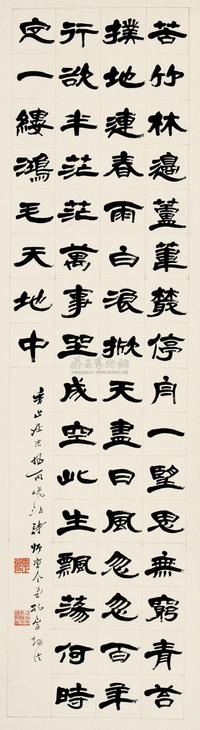 苦竹林邊蘆葦叢停舟一望思無窮青苔
撲地連春雨白浪掀天盡日風忽忽百年
行欲半茫茫萬事坐成空此生飄蕩何時
定一縷鴻毛天地中
香山居士風雨晚泊詩